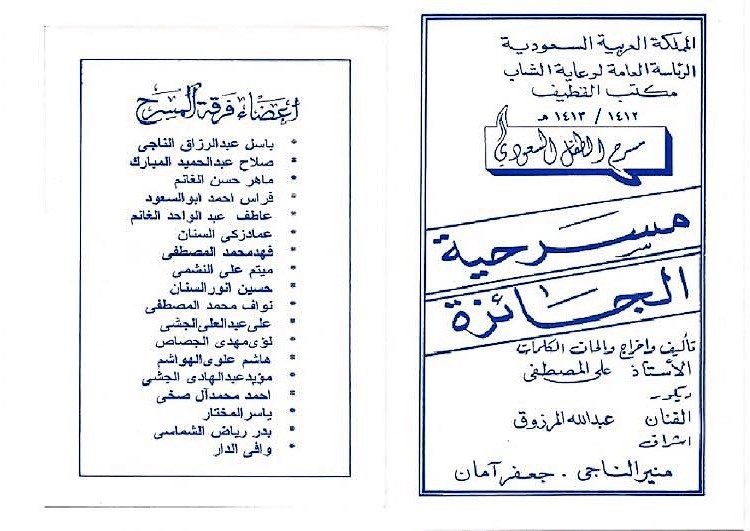 المملكة العربية السعودية
الرئاسة العامة لرعاية الشباب
مكتب القطيف
١٤١٢ / ١٤١٣ هـ
مسرح الطفل السعودي
مسرحية
الجائزة
تأليف واخراج والحان الكلمات
الأستاذ علي المصطفى
ديكور
الفنان عبدالله المرزوق
اشراف
منير الناجي . جعفر آمان
أعضاء فرقة المسرح
* باسل عبدالرزاق الناجى
* صلاح عبدالحميد المبارك
* ماهر حسن الغانم
* فراس احمد ابوالسعود
* عاطف عبد الواحد الغانم
* عمادزكى السنان
* فهدمحمد المصطفى
* ميثم على النشمى
* حسين انور السنان
* نواف محمد المصطفى
* على عبدالعلى الجشى
* لؤى مهدى الجصاص
* هاشم علوى الهواشم
* مؤيدعبدالهادى الجشى
* احمد محمدآل صخى
* ياسر المختار
* بدر رياض الشماسى
* وافى الدار